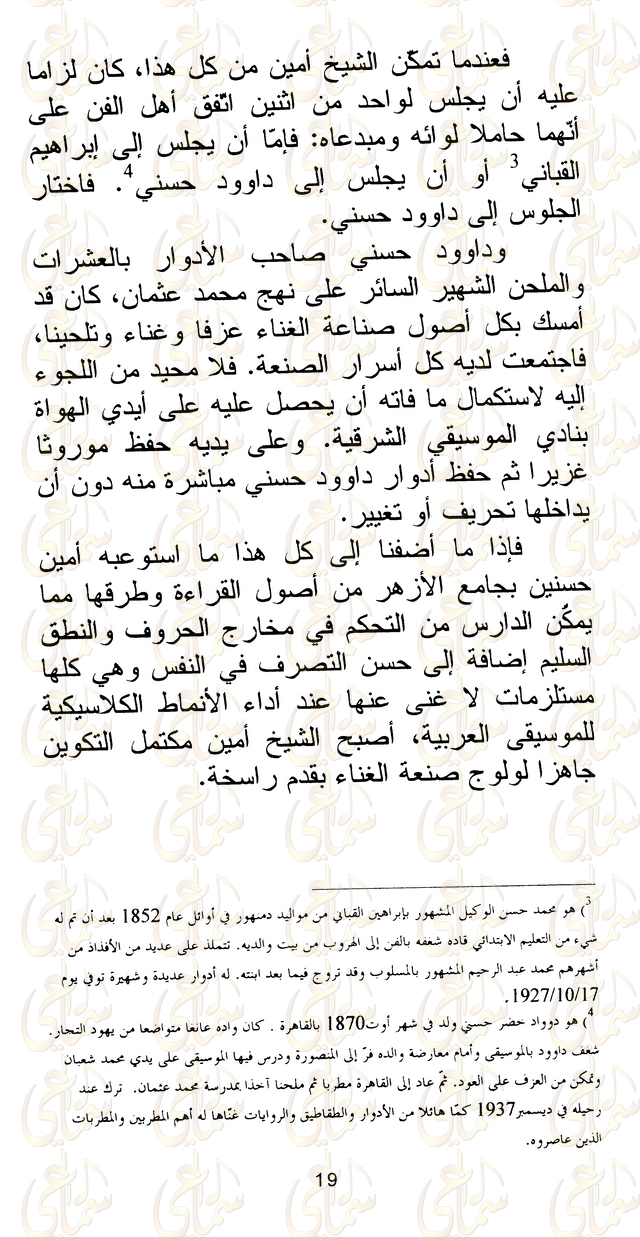 فعندما تمكّن الشيخ أمين من كل هذا، كان لزاما
عليه أن يجلس لواحد من اثنين اتّفق أهل الفن على
أنّهما حاملا لوائه ومبدعاه: فإمّا أن يجلس إلى إبراهيم
القباني3 أو أن يجلس إلى داوود حسني4. فاختار
الجلوس إلى داوود حسني.
وداوود حسني صاحب الأدوار بالعشرات
والملحن الشهير السائر على نهج محمد عثمان، كان قد
أمسك بكل أصول صناعة الغناء عزفا وغناء وتلحينا،
فاجتمعت لديه كل أسرار الصنعة. فلا محيد من اللجوء
إليه لاستكمال ما فاته أن يحصل عليه على أيدي الهواة
بنادي الموسيقي الشرقية. وعلى يديه حفظ موروثا
غزيرا ثم حفظ أدوار داوود حسني مباشرة منه دون أن
يداخلها تحريف أو تغيير.
فإذا ما أضفنا إلى كل هذا ما استوعبه أمين
حسنين بجامع الأزهر من أصول القراءة وطرقها مما
يمكّن الدارس من التحكم في مخارج الحروف والنطق
السليم إضافة إلى حسن التصرف في النفس وهي كلها
مستلزمات لا غنى عنها عند أداء الأنماط الكلاسيكية
للموسيقى العربية، أصبح الشيخ أمين مكتمل التكوين
جاهزا لولوج صنعة الغناء بقدم راسخة.
3) هو محمد حسن الوكيل المشهور بإبراهين القباني من مواليد دمنهور في أوائل عام 1852 بعد أن تم له
شيء من التعليم الابتدائي قاده شغفه بالفن إلى الهروب من بيت والديه. تتملذ على عديد من الأفذاذ من
أشهرهم محمد عبد الرحيم المشهور بالمسلوب وقد تروج فيما بعد ابنته. له أدوار عديدة وشهيرة توفي يوم
1927/10/17.
4) هو دوواد خضر حسني ولد في شهر أوت1870 بالقاهرة . كان واده عانغا متواضعا من يهود التجار.
شغف داوود بالموسيقى وأمام معارضة والده فرّ إلى المنصورة ودرس فيها الموسيقى على يدي محمد شعبان
وتمكن من العزف على العود. ثمّ عاد إلى القاهرة مطربا ثم ملحنا آخذا بمدرسة محمد عثمان. ترك عند
رحيله في ديسمبر1937 كمّا هائلا من الأدوار والطقاطيق والروايات غنّاها له أهم المطربين والمطربات
الذين عاصروه.
19